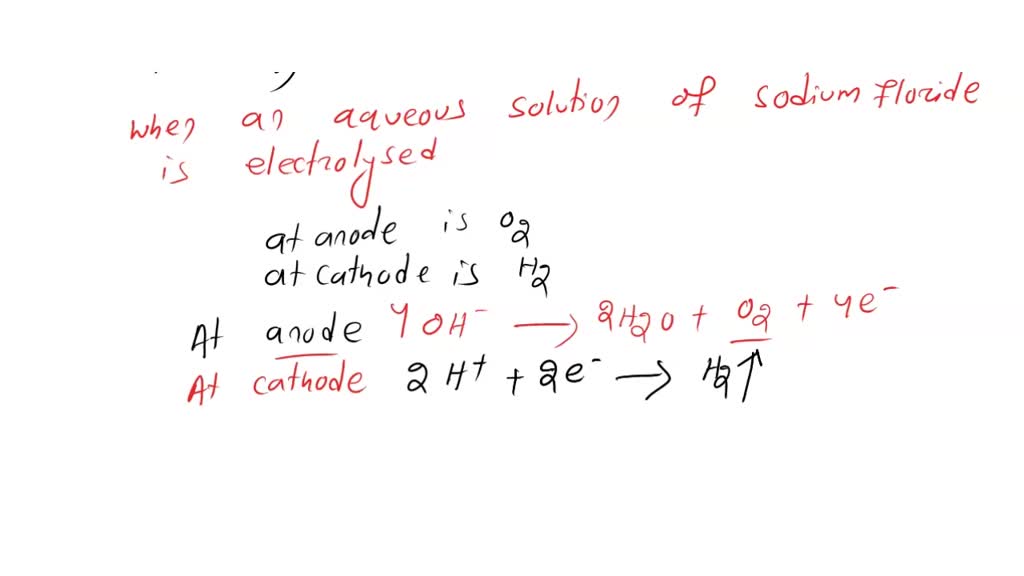 when an aqueous solution of sodium floride
is electrolysed
at anode is O2
at cathode is H2
At anode 4OH⁻ → 2H2O + O2 + 4e⁻
At cathode 2H⁺ + 2e⁻ → H2↑